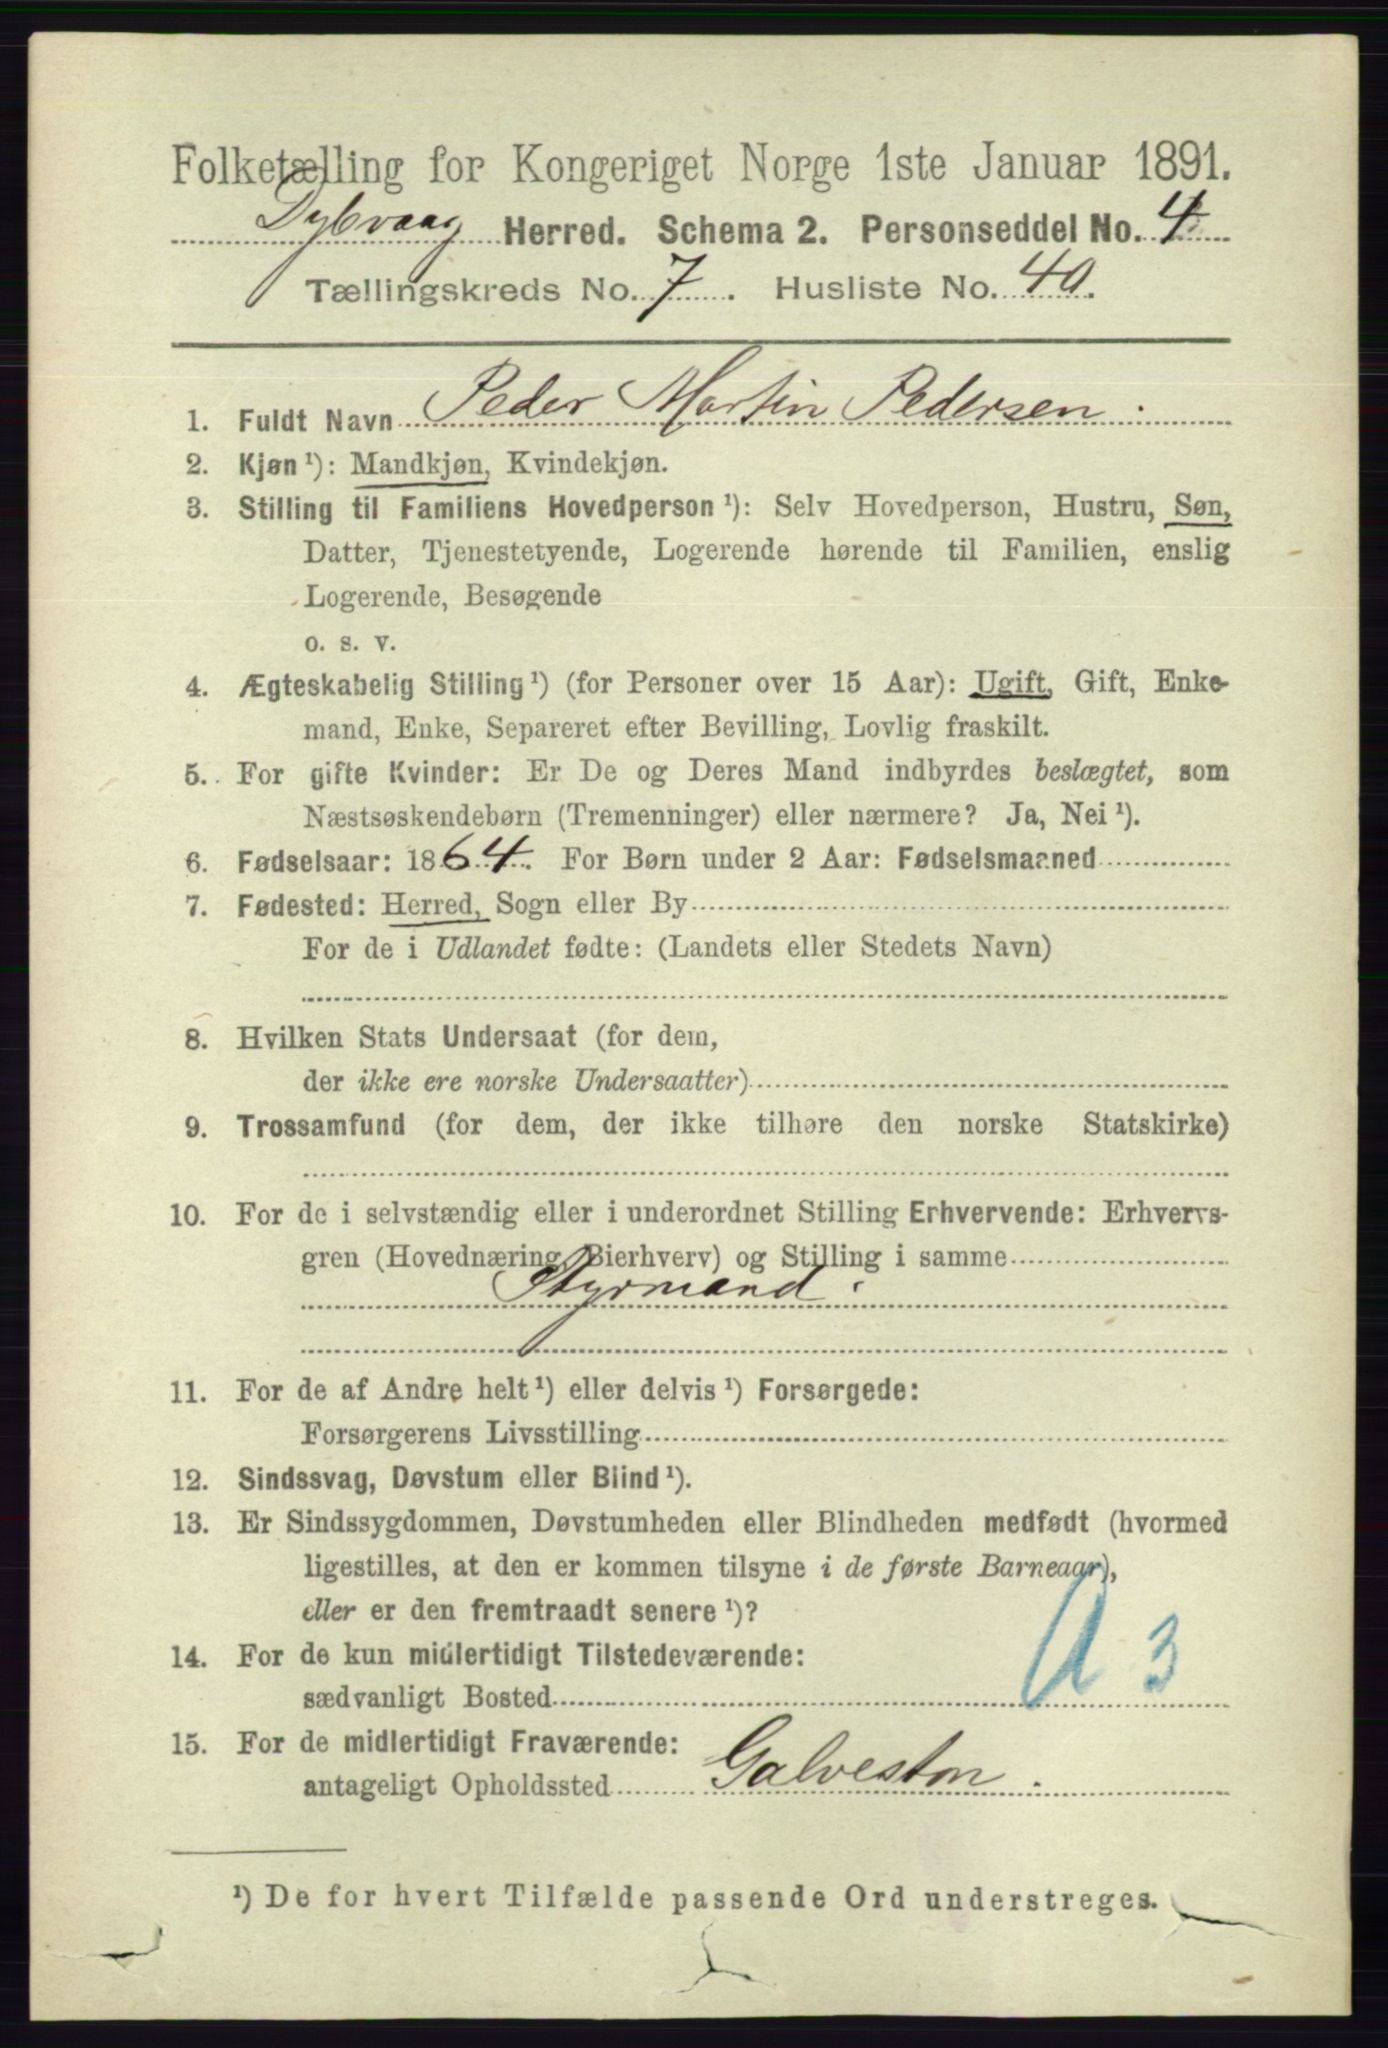 Folketælling for Kongeriget Norge 1ste Januar 1891.
Dybvaag Herred. Schema 2. Personseddel No. 4
Tællingskreds No. 7. Husliste No. 40.
1. Fuldt Navn Peder Martin Pedersen.
2. Kjøn ¹): Mandkjøn, Kvindekjøn.
3. Stilling til Familiens Hovedperson ¹): Selv Hovedperson, Hustru, Søn,
Datter, Tjenestetyende, Logerende hørende til Familien, enslig
Logerende, Besøgende
o. s. v.
4. Ægteskabelig Stilling ¹) (for Personer over 15 Aar): Ugift, Gift, Enke-
mand, Enke, Separeret efter Bevilling, Lovlig fraskilt.
5. For gifte Kvinder: Er De og Deres Mand indbyrdes beslægtet, som
Næstsøskendebørn (Tremenninger) eller nærmere? Ja, Nei ¹).
6. Fødselsaar: 1864. For Børn under 2 Aar: Fødselsmaaned
7. Fødested: Herred, Sogn eller By
For de i Udlandet fødte: (Landets eller Stedets Navn)
8. Hvilken Stats Undersaat (for dem,
der ikke ere norske Undersaatter)
9. Trossamfund (for dem, der ikke tilhøre den norske Statskirke)
10. For de i selvstændig eller i underordnet Stilling Erhvervende: Erhvervs-
gren (Hovednæring, Bierhverv) og Stilling i samme
Styrmand.
11. For de af Andre helt ¹) eller delvis ¹) Forsørgede:
Forsørgerens Livsstilling
12. Sindssvag, Døvstum eller Blind ¹).
13. Er Sindssygdommen, Døvstumheden eller Blindheden medfødt (hvormed
ligestilles, at den er kommen tilsyne i de første Barneaar),
eller er den fremtraadt senere ¹)?
14. For de kun midlertidigt Tilstedeværende:
sædvanligt Bosted
3
15. For de midlertidigt Fraværende:
antageligt Opholdssted Galveston.
¹) De for hvert Tilfælde passende Ord understreges.